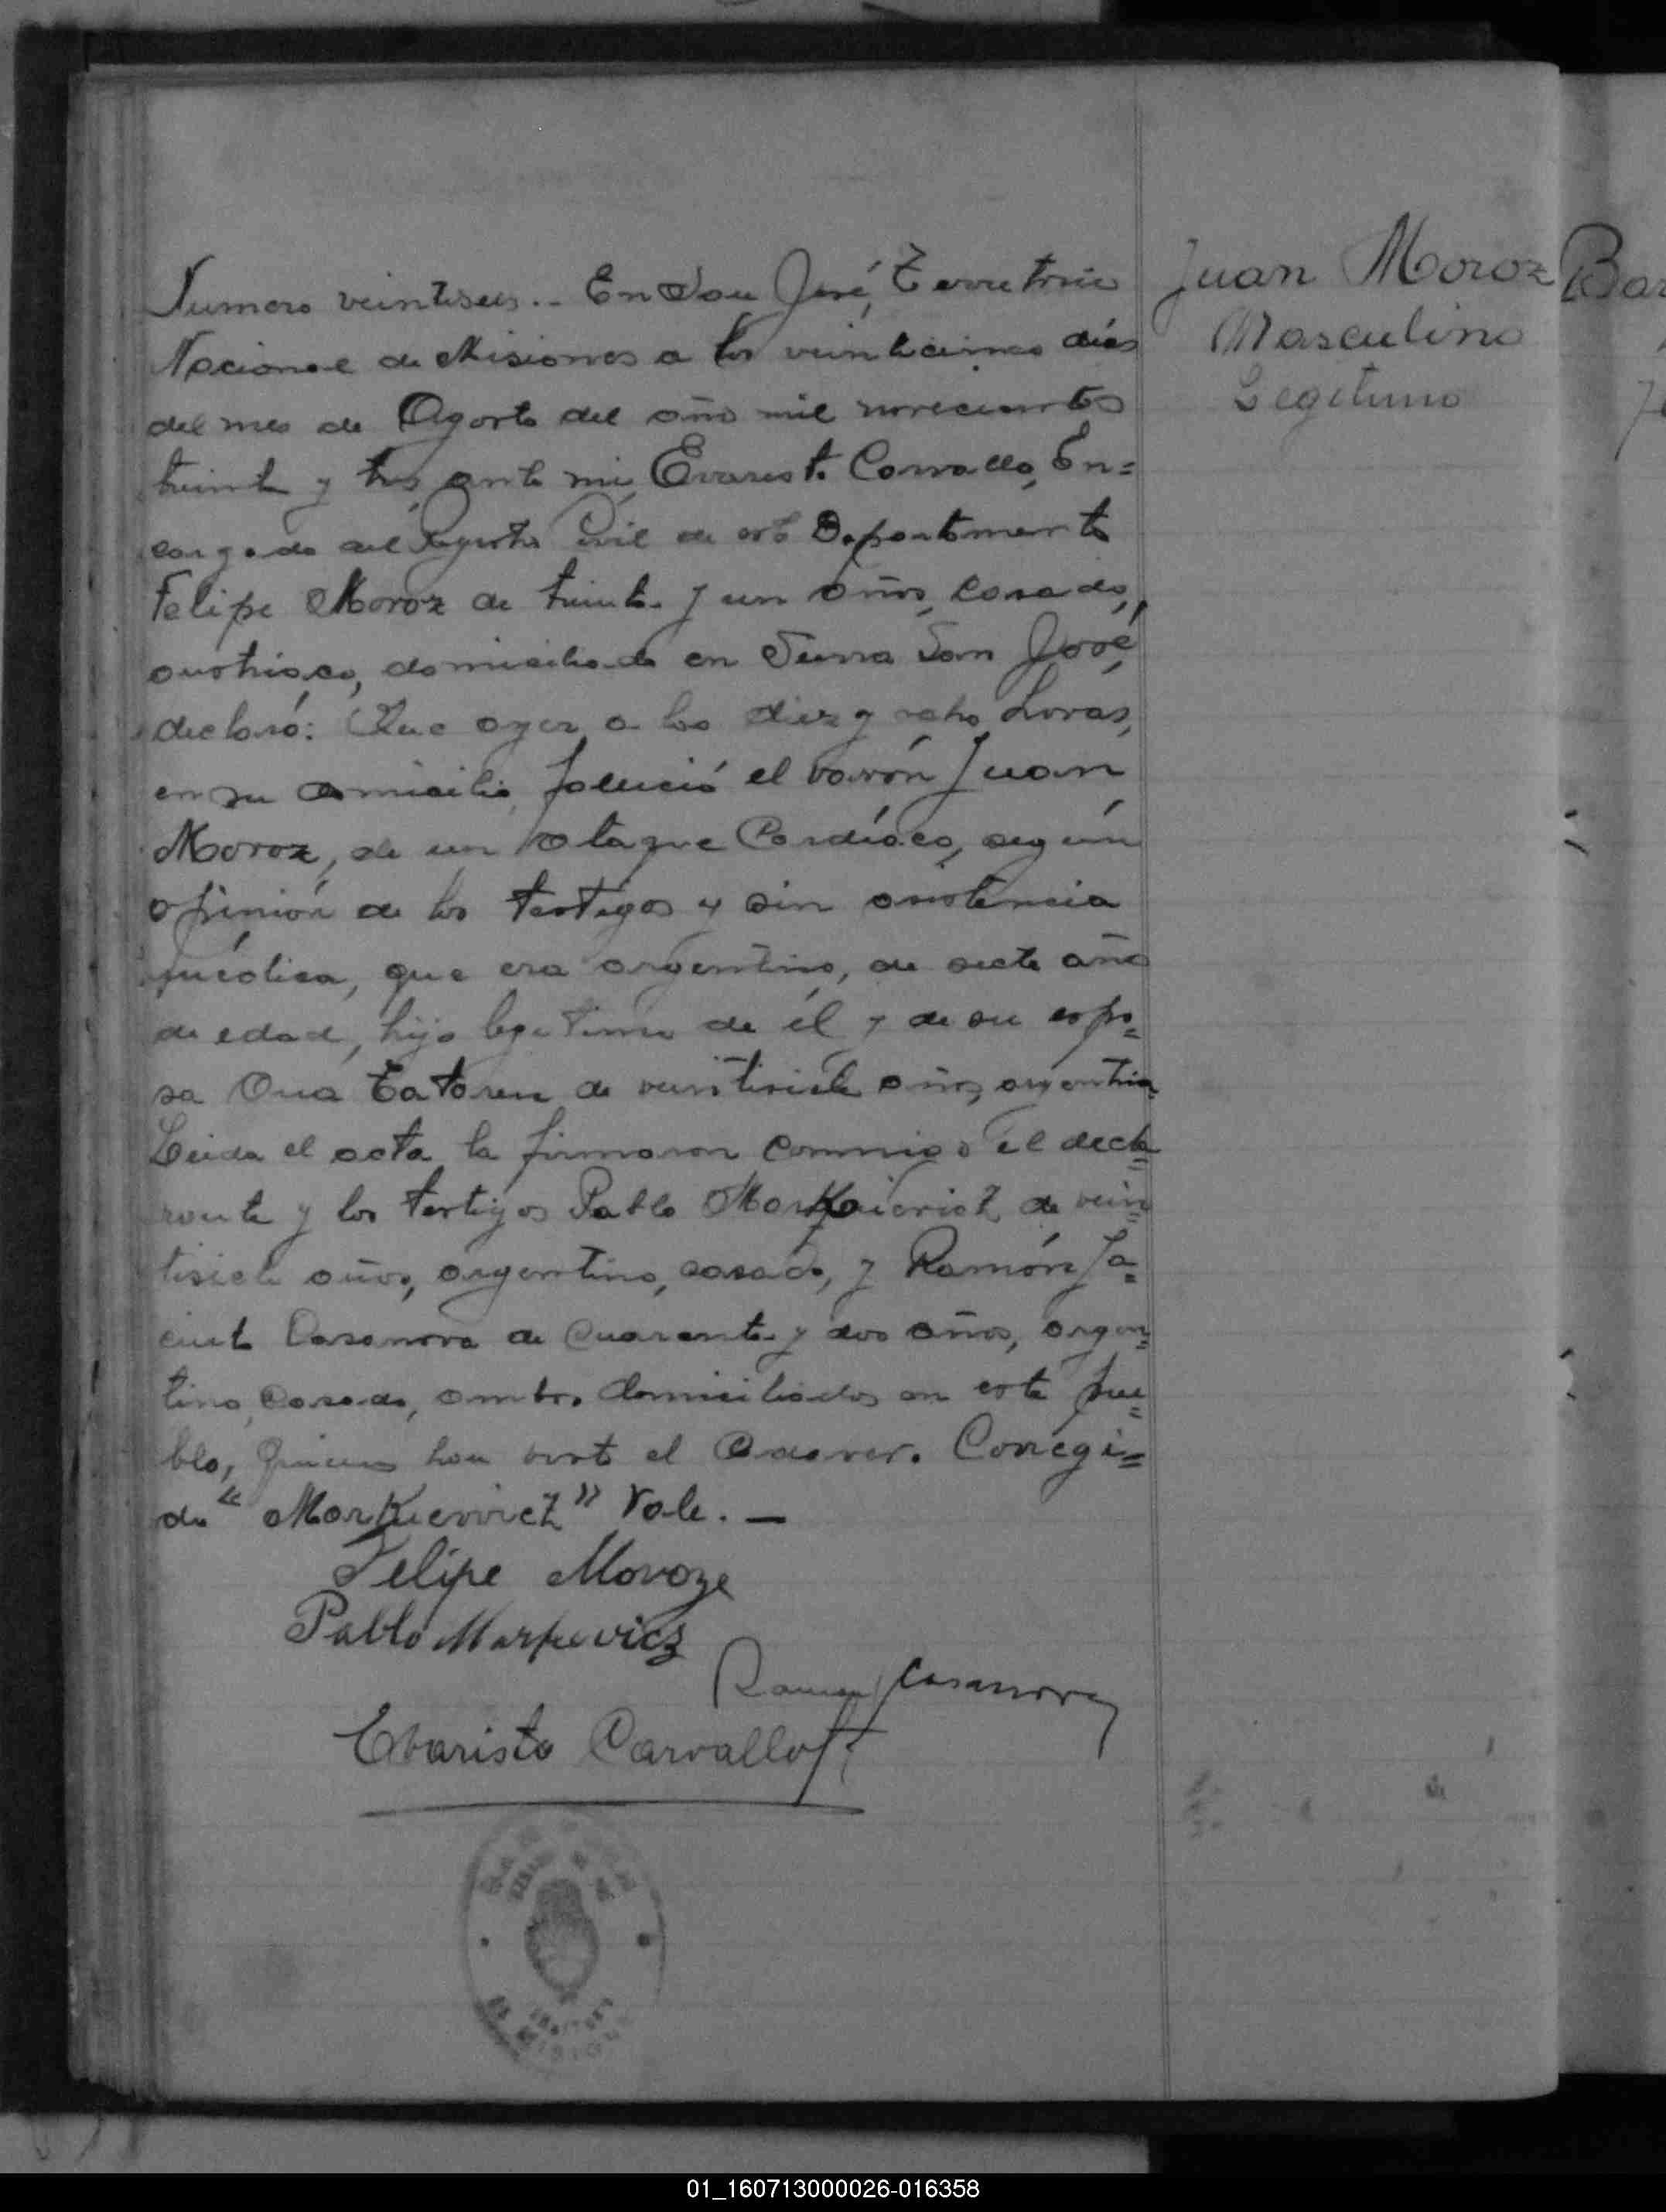 Numero veintiseis.- En San José, Territorio
Nacional de Misiones a los veinticinco dias
del mes de Agosto del año mil novecientos
treinta y tres, ante mi, Evaristo Carvallo, En=
cargado del Registro Civil de este Departamento
Felipe Moroz de treinta y un años, casado,
austriaco, domiciliado en Sierra San José,
declaró: Que ayer a las diez y ocho horas,
en su domicilio falleció el varón Juan
Moroz, de un ataque Cardíaco, según
opinión de los testigos y sin asistencia
médica, que era argentino, de siete años
de edad, hijo legitimo de él y de su espo=
sa Ana de veintisiete años, argentina.
Leida el acta la firmaron conmigo el decla=
rante y los testigos Pablo de vein=
tisiete años, argentino, casado, y Ramón Ja=
cinto Casanova de cuarenta y dos años, argen=
tino, casado, ambos domiciliados en este pue=
blo, quienes han visto el cadaver. Corregi=
do "Markievicz" Vale.-
Felipe Moroze
Pablo Markevicz
Ramon J Casanova
Ebaristo Carvallo
Juan Moroz
Masculino
Legitimo
Bar
01_160713000026-016358